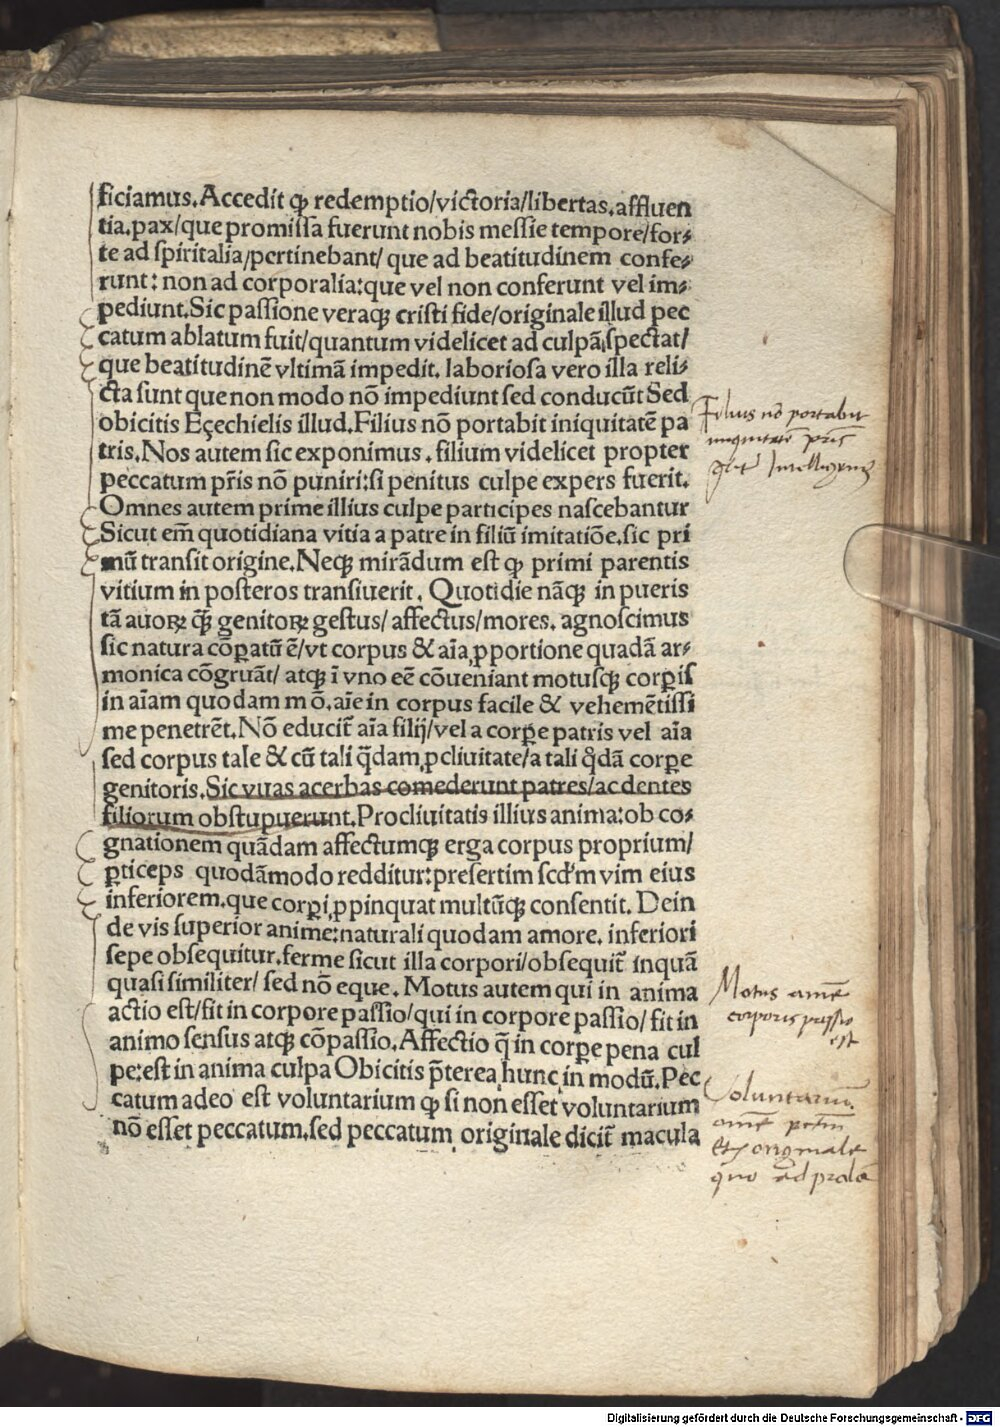 ficiamus. Accedit ꝙ redemptio/victoria/libertas. affluen
tia. pax/que promissa fuerunt nobis messie tempore/for⸗
te ad spiritalia/pertinebant/ que ad beatitudinem confe⸗
runt: non ad corporalia: que vel non conferunt vel im⸗
pediunt. Sic passione veraqꝫ cristi fide/originale illud pec
catum ablatum fuit/quantum videlicet ad culpā spectat/
que beatitudinē vltimā impedit. laboriosa vero illa reli⸗
cta sunt que non modo nō impediunt sed conducūt Sed
obicitis Eçechielis illud. Filius nō portabit iniquitatē pa
tris. Nos autem sic exponimus. filium videlicet propter
peccatum pr̄is nō puniri: si penitus culpe expers fuerit.
Omnes autem prime illius culpe participes nascebantur
Sicut em̄ quotidiana vitia a patre in filiū imitatiōe. sic pri
mū transit origine. Neqꝫ mirādum est ꝙ primi parentis
vitium in posteros transiuerit. Quotidie nāqꝫ in pueris
tā auoꝝ q̄ꝫ genitoꝝ gestus/ affectus/mores. agnoscimus
sic natura cōꝑatū ē/vt corpus & aīa ꝓportione quadā ar⸗
monica cōgruāt/ atqꝫ ī vno eē cōueniant motusqꝫ corꝑis
in aīam quodam mō. aīe in corpus facile & vehemētissi
me penetrēt. Nō educit̄ aīa filij/vel a corꝑe patris vel aīa
sed corpus tale & cū tali q̄dam ꝓcliuitate/a tali q̊dā corꝑe
genitoris. Sic vuas acerbas comederunt patres/ac dentes
filiorum obstupuerunt. Procliuitatis illius anima: ob co⸗
gnationem quādam affectumqꝫ erga corpus proprium/
ꝑticeps quodāmodo redditur: presertim scd̄m vim eius
inferiorem. que corꝑi ꝓpinquat multūqꝫ consentit. Dein
de vis superior anime: naturali quodam amore. inferiori
sepe obsequitur. ferme sicut illa corpori/obsequit̄ inquā
quasi similiter/ sed nō eque. Motus autem qui in anima
actio est/fit in corpore passio/qui in corpore passio/ fit in
animo sensus atqꝫ cōpassio. Affectio q̄ in corꝑe pena cul
pe: est in anima culpa Obicitis p̄terea hunc in modū. Pec
catum adeo est voluntarium ꝙ si non esset voluntarium
nō esset peccatum. sed peccatum originale dicit̄ macula
Filius nō portabit
iniquitatē pr̄is
Motus anīe
corporis passio
est
Voluntarium
originale
quo ad
Digitalisierung gefördert durch die Deutsche Forschungsgemeinschaft - DFG